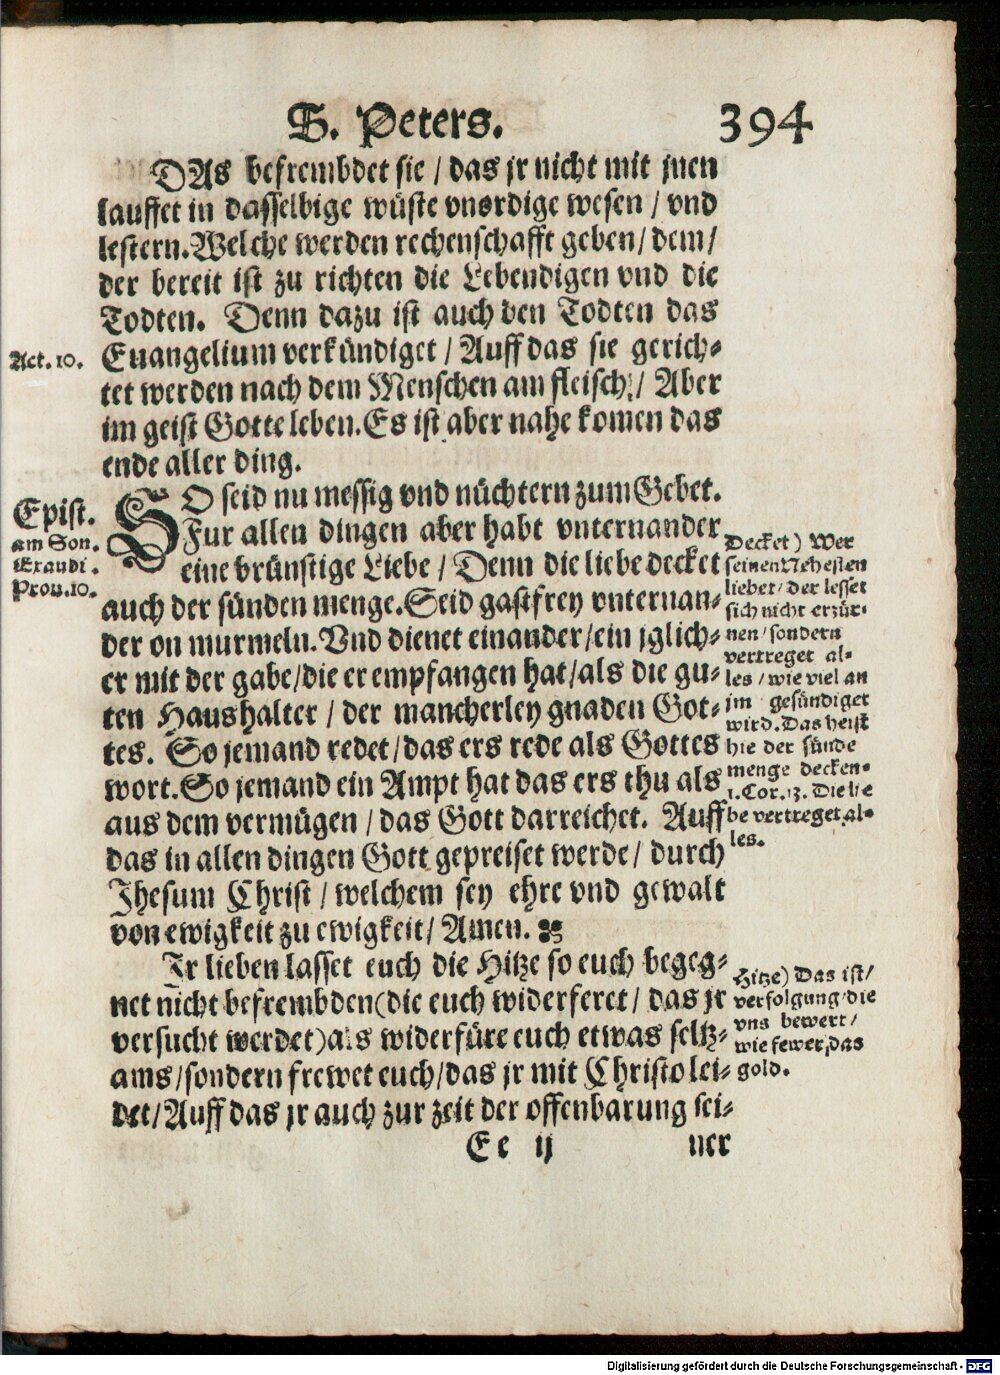 S. Peters. 394
DAs befrembdet sie / das jr nicht mit jnen
lauffet in dasselbige wüste vnordige wesen / vnd
lestern. Welche werden rechenschafft geben / dem /
der bereit ist zu richten die Lebendigen vnd die
Todten. Denn dazu ist auch den Todten das
Euangelium verkündiget / Auff das sie gerich-
tet werden nach dem Menschen am fleisch / Aber
im geist Gotte leben. Es ist aber nahe komen das
ende aller ding.
Act. 10.
SO seid nu messig vnd nüchtern zum Gebet.
Fur allen dingen aber habt vnternander
eine brünstige Liebe / Denn die liebe decket
auch der sünden menge. Seid gastfrey vnternan-
der on murmeln. Vnd dienet einander / ein jglich-
er mit der gabe / die er empfangen hat / als die gu-
ten Haushalter / der mancherley gnaden Got-
tes. So jemand redet / das ers rede als Gottes
wort. So jemand ein Ampt hat das ers thu als
aus dem vermügen / das Gott darreichet. Auff
das in allen dingen Gott gepreiset werde / durch
Jhesum Christ / welchem sey ehre vnd gewalt
von ewigkeit zu ewigkeit / Amen.
Epist.
am Son.
Exaudi.
Prou. 10.
Decket) Wer
seinen Nehesten
liebet / der lesset
sich nicht erzür-
nen / sondern
vertreget al-
les / wie viel an
jm gesündiget
wird. Das heist
hie der sünde
menge decken.
1. Cor. 13. Die lie
be vertreget al-
les.
Ir lieben lasset euch die Hitze so euch begeg-
net nicht befrembden (die euch widerferet / das jr
versucht werdet) als widerfüre euch etwas seltz-
ams / sondern frewet euch / das jr mit Christo lei-
det / Auff das jr auch zur zeit der offenbarung sei-
Hitze) Das ist /
verfolgung die
vns bewert /
wie fewer, das
gold.
Ee ij ner
Digitalisierung gefördert durch die Deutsche Forschungsgemeinschaft - DFG